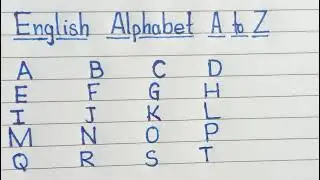 English Alphabet A to Z
A B C D
E F G H
I J K L
M N O P
Q R S T